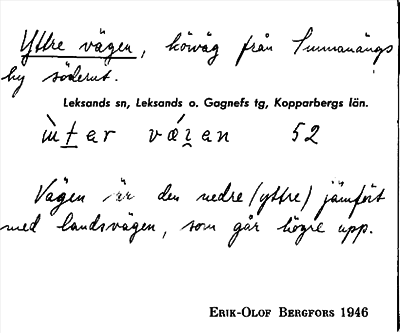 Yttre vägen, körväg från Sunnanängs
by söderut.
Leksands sn, Leksands o. Gagnefs tg, Kopparbergs län.
ìt̠ar vǽɪ̯an 52
Vägen är den nedre (yttre) jämfört
med landsvägen, som går högre upp.
Erik-Olof Bergfors 1946